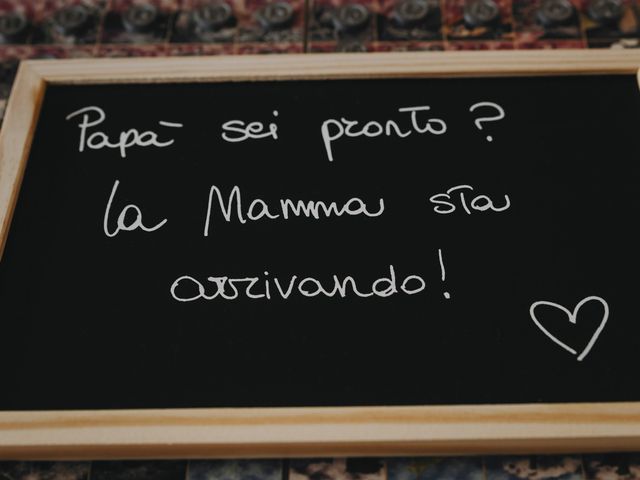 Papà sei pronto?
la Mamma sta
arrivando!